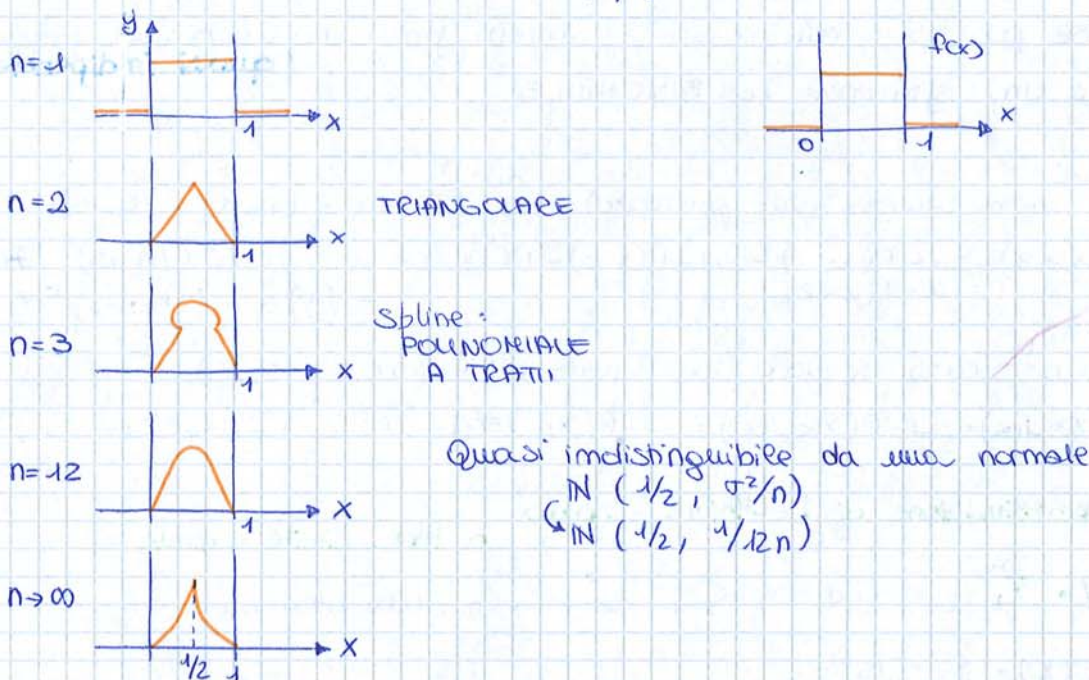 y
n=1
1
x
f(x)
0
1
x
n=2
TRIANGOLARE
1
x
n=3
Spline:
POLINOMIALE
A TRATTI
1
x
n=12
Quasi indistinguibile da una normale
IN (1/2, σ²/n)
IN (1/2, 1/12n)
1
x
n→∞
1/2
1
x